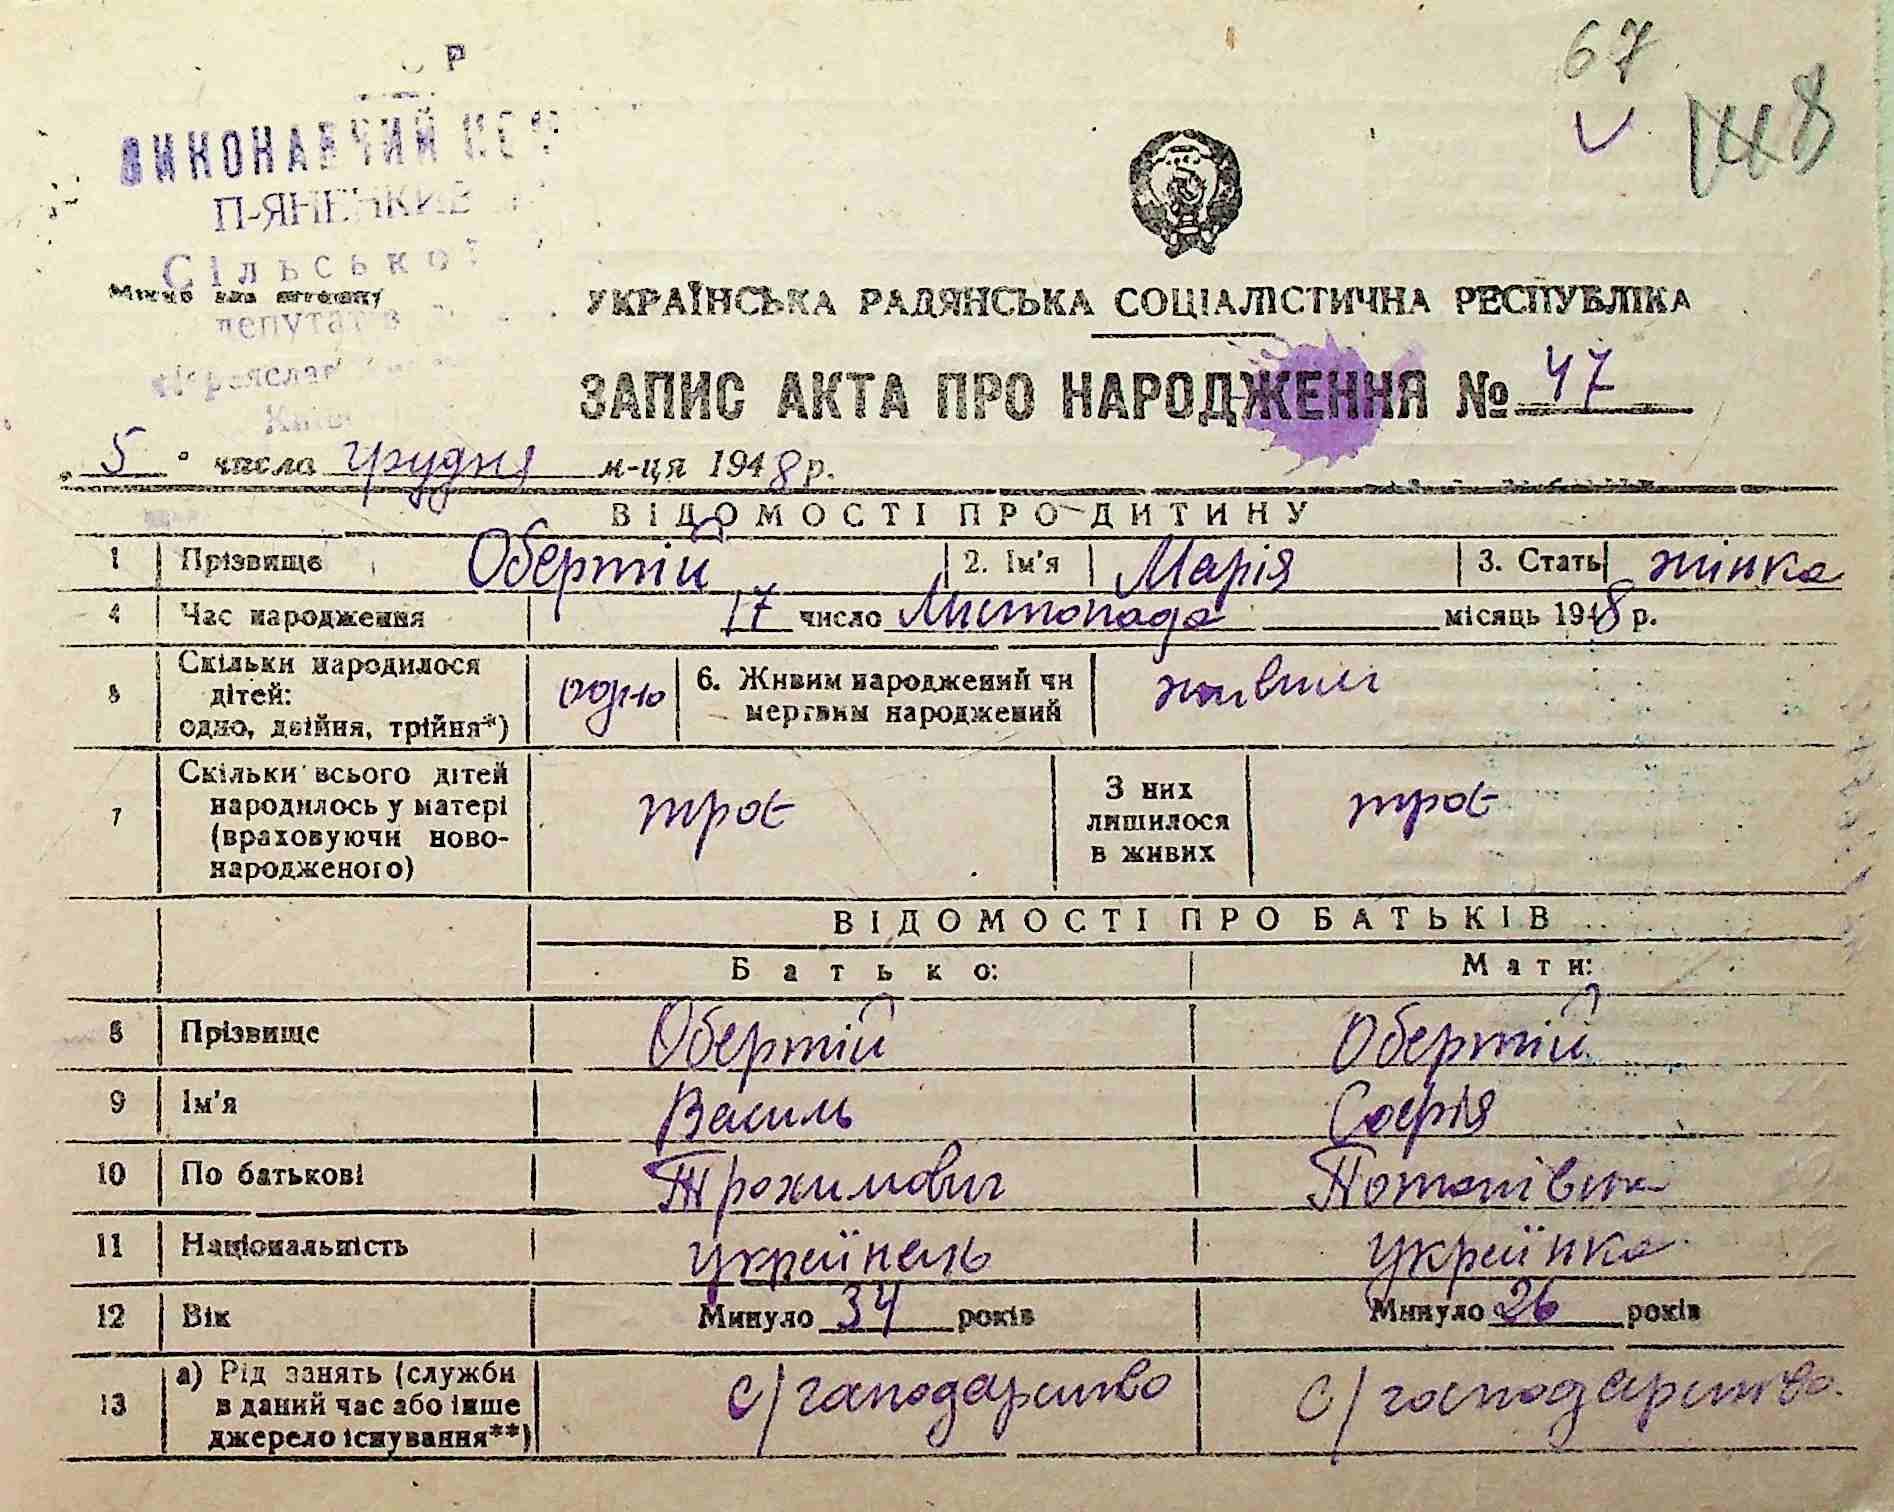 67
148
Р
ВИКОНАВЧИЙ
Сільської
Місце для штампу
УКРАЇНСЬКА РАДЯНСЬКА СОЦІАЛІСТИЧНА РЕСПУБЛІКА
ЗАПИС АКТА ПРО НАРОДЖЕННЯ № 47
„ 5 " числа грудня м-ця 1948 р.
ВІДОМОСТІ ПРО ДИТИНУ
1 Прізвище Обертій 2. Ім'я Марія 3. Стать жінка
4 Час народження 17 число Листопада місяць 1948 р.
5 Скільки народилося дітей: одно, двійня, трійня*) одно 6. Живим народжений чи мертвим народжений живим
7 Скільки всього дітей народилось у матері (враховуючи ново-народженого) троє З них лишилося в живих троє
ВІДОМОСТІ ПРО БАТЬКІВ
Батько: Мати:
8 Прізвище Обертій Обертій
9 Ім'я Василь Софія
10 По батькові Трохимович Потапівна
11 Національність українець українка
12 Вік Минуло 34 років Минуло 26 років
13 а) Рід занять (служби в даний час або інше джерело існування**) с/господарство с/господарство